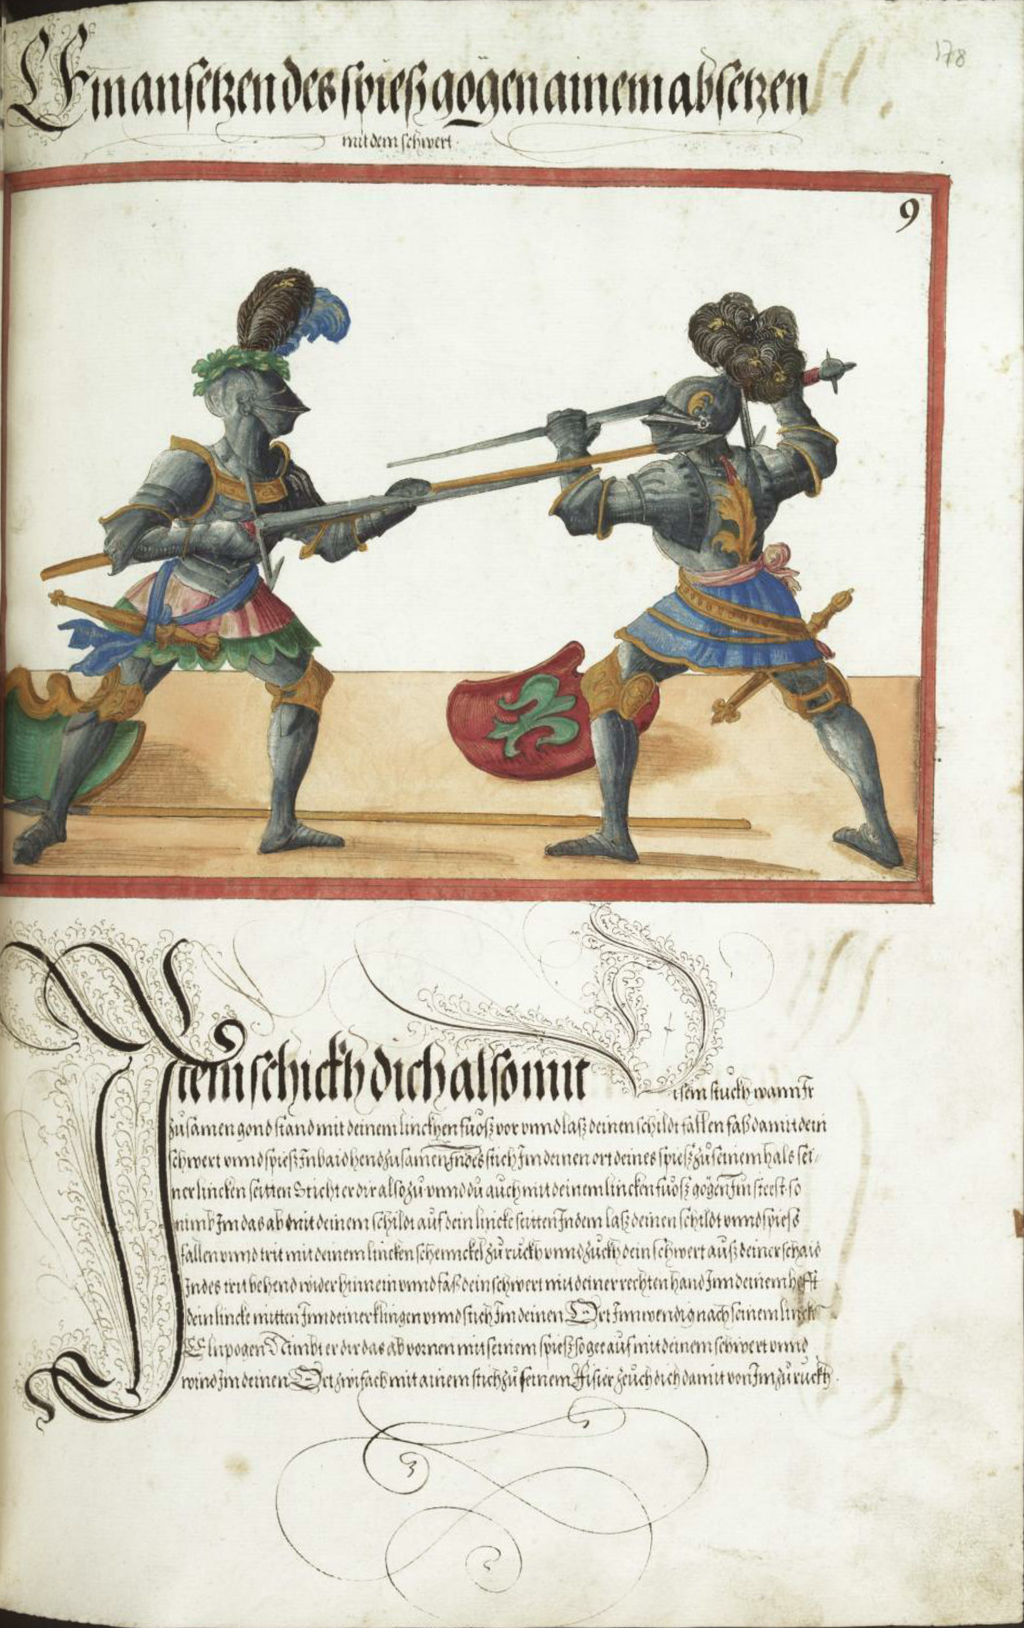 178
Ein ansetzen des spiess gögen ainem absetzen
mit dem schwert.
9
Item schickh dich also mit Disem stuckh wann Ir
zusamen gond stand mit deinem linckhen fuosz vor vnnd lasz deinen schildt fallen fasz damit dein
schwert vnnd spiesz In baid hend zusamen Indes stich Im deinen ort deines spiesz zu seinem hals sei-
ner lincken seitten Sticht er dir also zu vnnd du auch mit deinem lincken fuosz gögen Im steest so
nimb Im das ab mit deinem schildt auf dein lincke seitten Indem lasz deinen schildt vnnd spiess
fallen vnnd trit mit deinem lincken schennckel zu ruckh vnnd zuckh dein schwert ausz deiner schaid
Indes trit behend wider hinnein vnnd fasz dein schwert mit deiner rechten hand Inn deinem hefft
dein lincke mitten Inn deiner klingen vnnd stich Im deinen Ort Innwendig nach seinem linckh
Elnpogen Nimbt er dir das ab vornen mit seinem spiesz so gee auf mit deinem schwert vnnd
wind Im deinen Ort zwifach mit ainem stich zu seinem Fisier zeuch dich damit von Im zu ruckh.